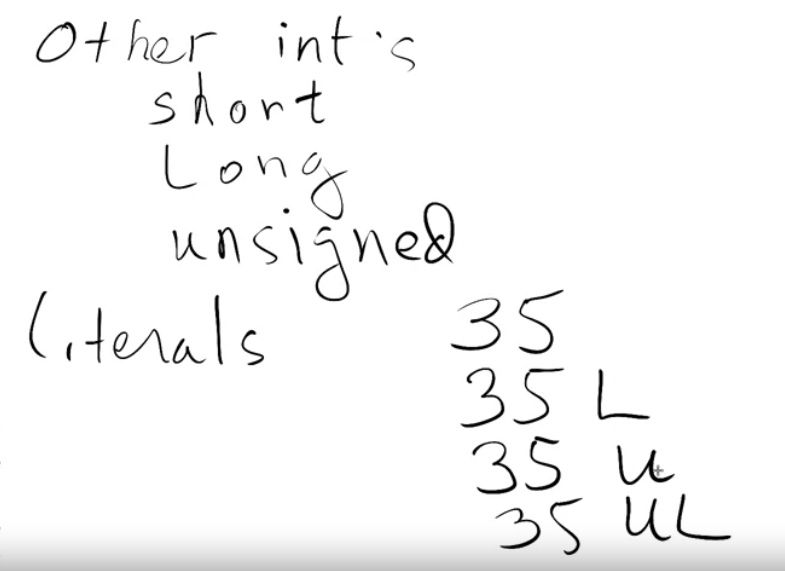 Other int's
short
Long
unsigned
Literals 35
35 L
35 u
35 UL